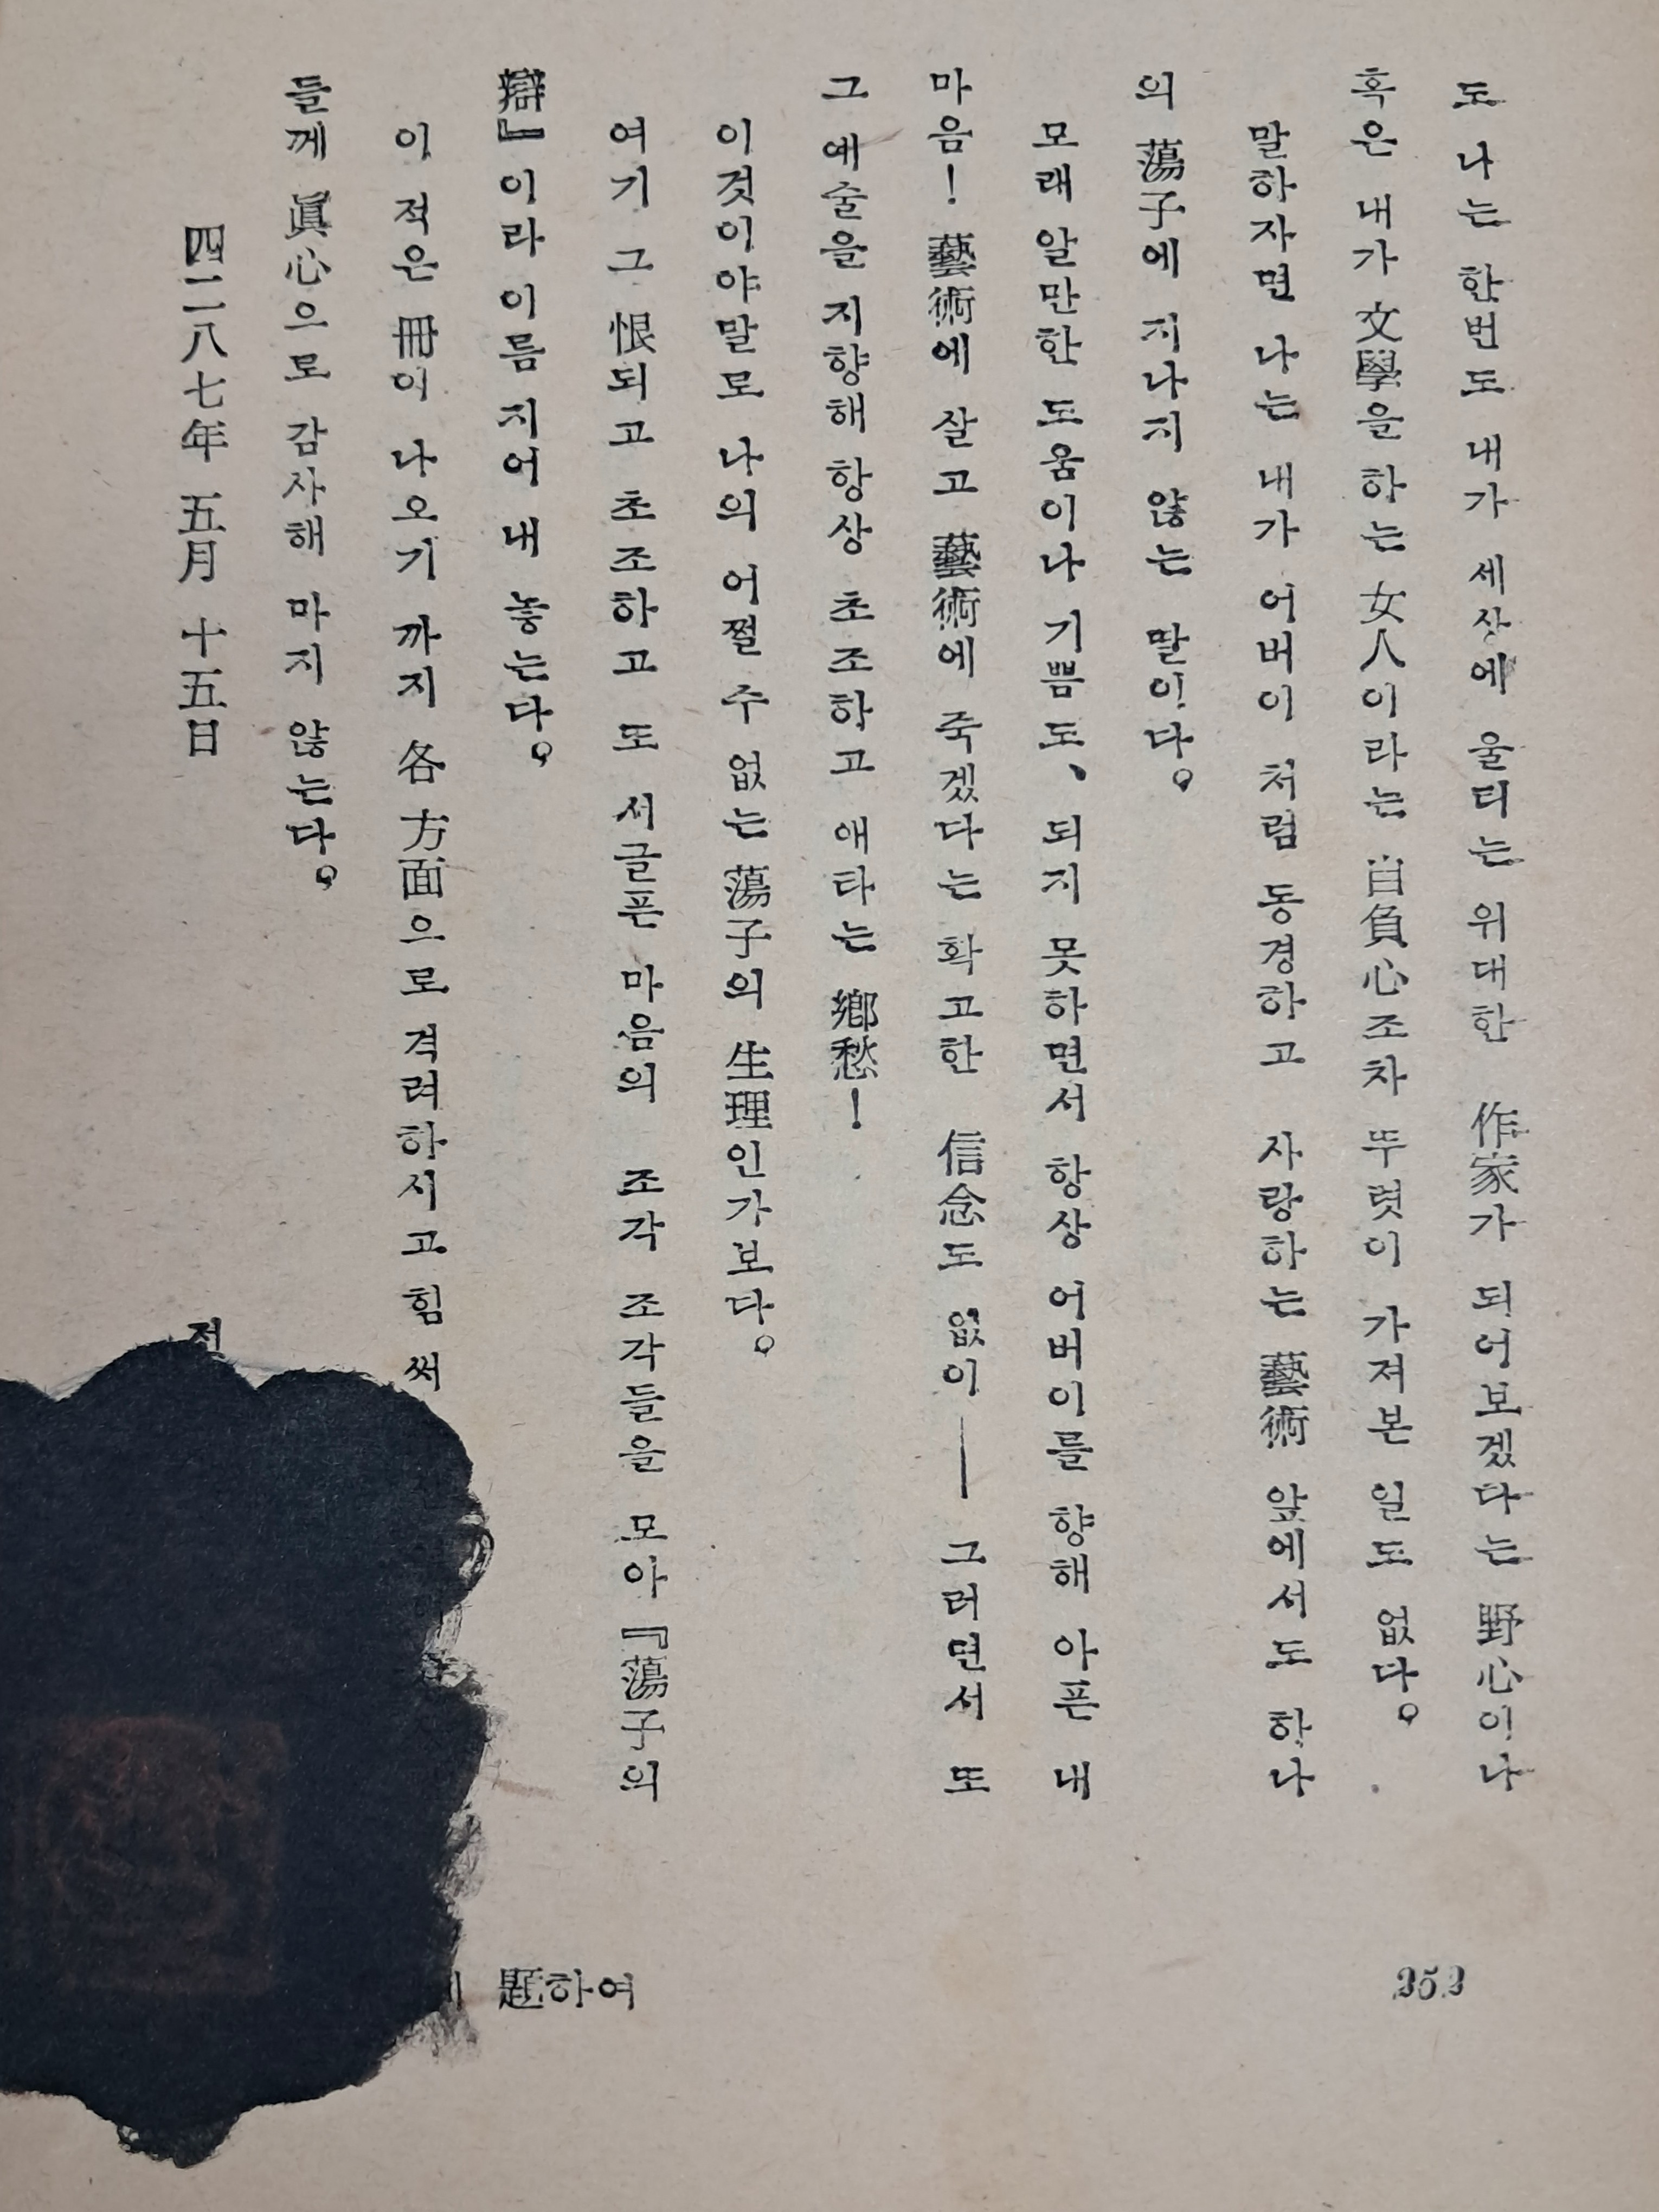 도 나는 한번도 내가 세상에 울리는 위대한 作家가 되어보겠다는 野心이나
혹은 내가 文學을 하는 女人이라는 自負心조차 뚜렷이 가져본 일도 없다。
말하자면 나는 내가 어버이 처럼 동경하고 사랑하는 藝術 앞에서도 하나
의 蕩子에 지나지 않는 딸이다。
모래알만한 도움이나 기쁨도、되지 못하면서 항상 어버이를 향해 아픈 내
마음! 藝術에 살고 藝術에 죽겠다는 확고한 信念도 없이— 그러면서 또
그 예술을 지향해 항상 초조하고 애타는 鄕愁!
이것이야말로 나의 어쩔 수 없는 蕩子의 生理인가보다。
여기 그 恨되고 초조하고 도 서글픈 마음의 조각 조각들을 모아『蕩子의
辯』이라 이름 지어 내놓는다。
이 적은 冊이 나오기 까지 各 方面으로 격려하시고 힘써
들께 眞心으로 감사해 마지 않는다。
四二八七年 五月 十五日
題하여